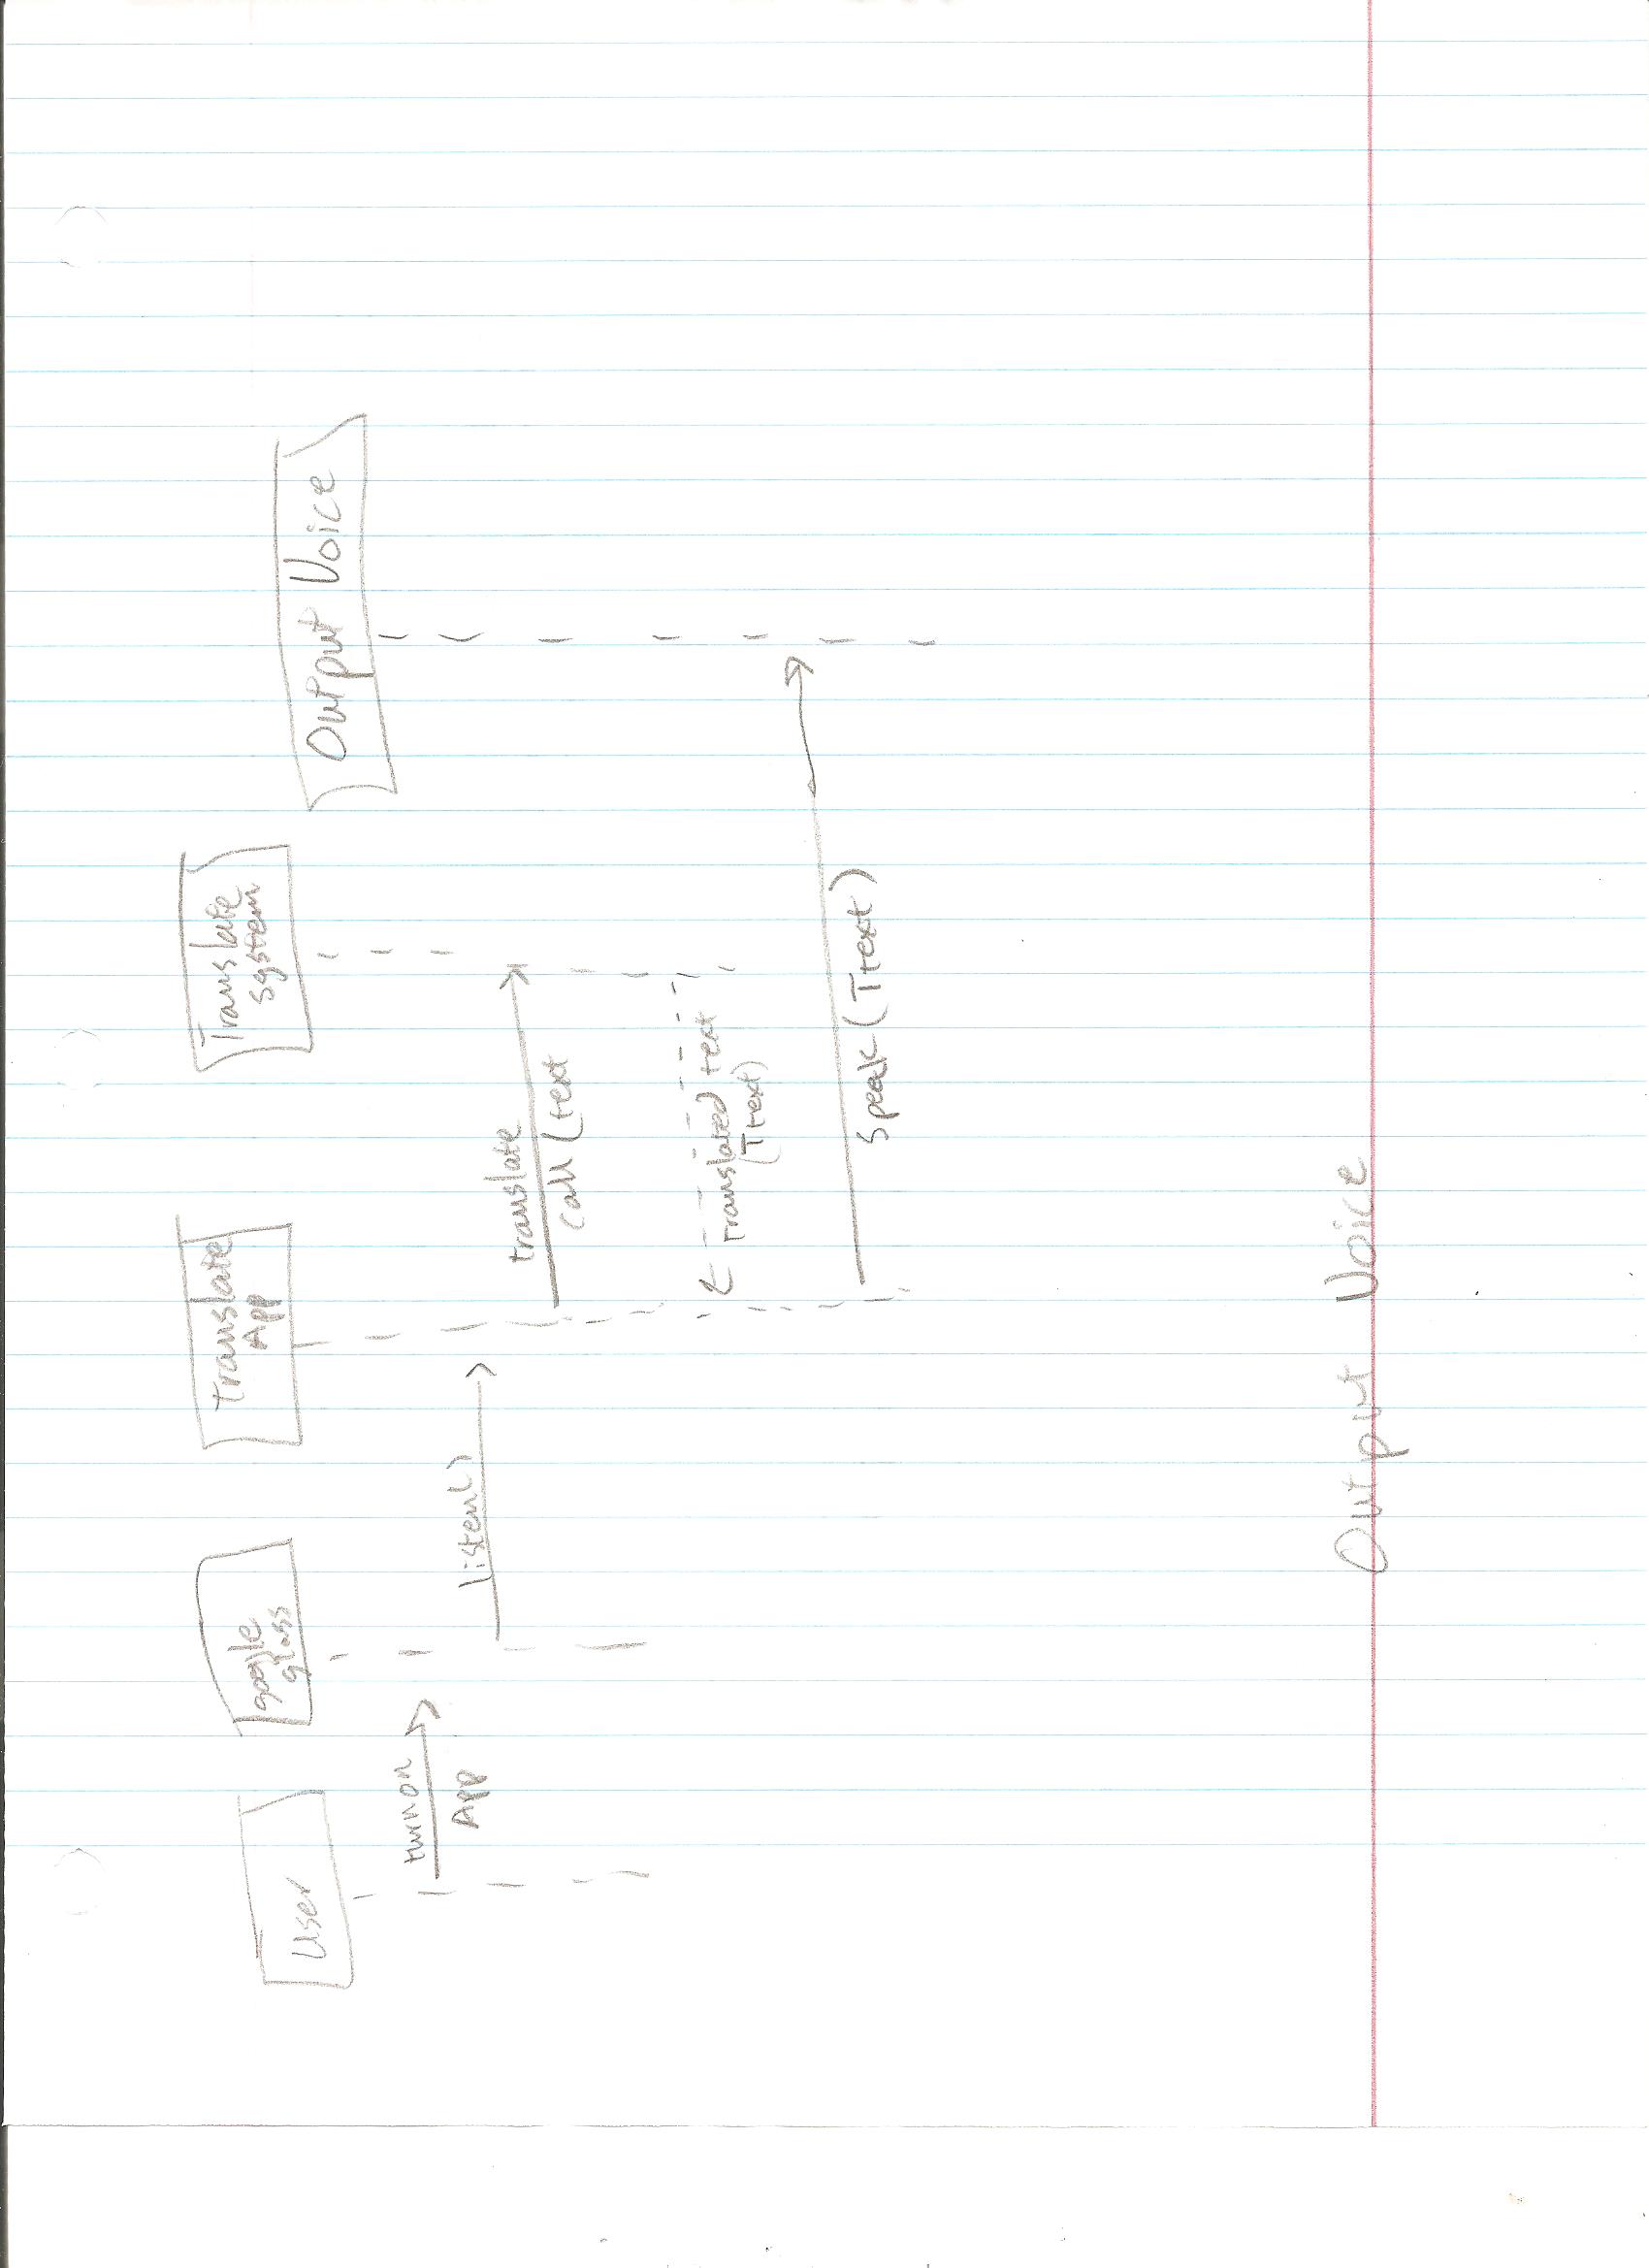 User
google
glass
Translate
App
Translate
system
Output Voice
turnon
App
Listen()
translate
call (text
translated text
(Ttext)
speak (Ttext)
Output Voice